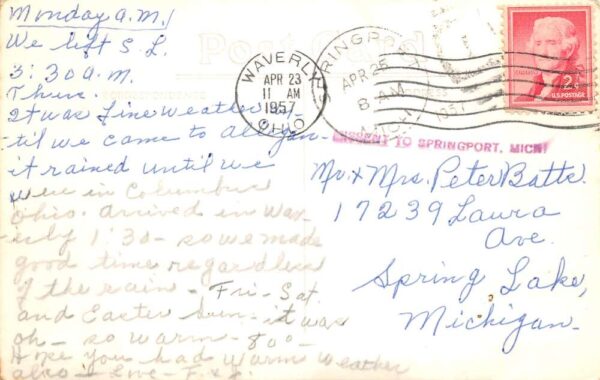 Monday a.m.
We left S. L.
3:30 a.m.
Thur.
It was fine weather
'til we came to Allegan-
it rained until we
were in Columbus
Ohio. arrived in Wav-
erly 1:30 - so we made
good time regardless
of the rain - Fri - Sat.
and Easter Sun - it was
oh - so warm - 80° -
Hope you had warm weather
also - Love - F. &
Post Card
CORRESPONDENCE
ADDRESS
WAVERLY
APR 23
11 AM
1957
OHIO
SPRINGPORT
APR 25
8 AM
1957
MICH.
2¢
U.S. POSTAGE
MISSENT TO SPRINGPORT, MICH
Mr. & Mrs. Peter Batts.
17239 Laura
Ave.
Spring Lake,
Michigan-